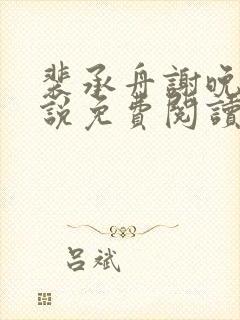 裴承舟謝晚
說免費閱讀
呂斌